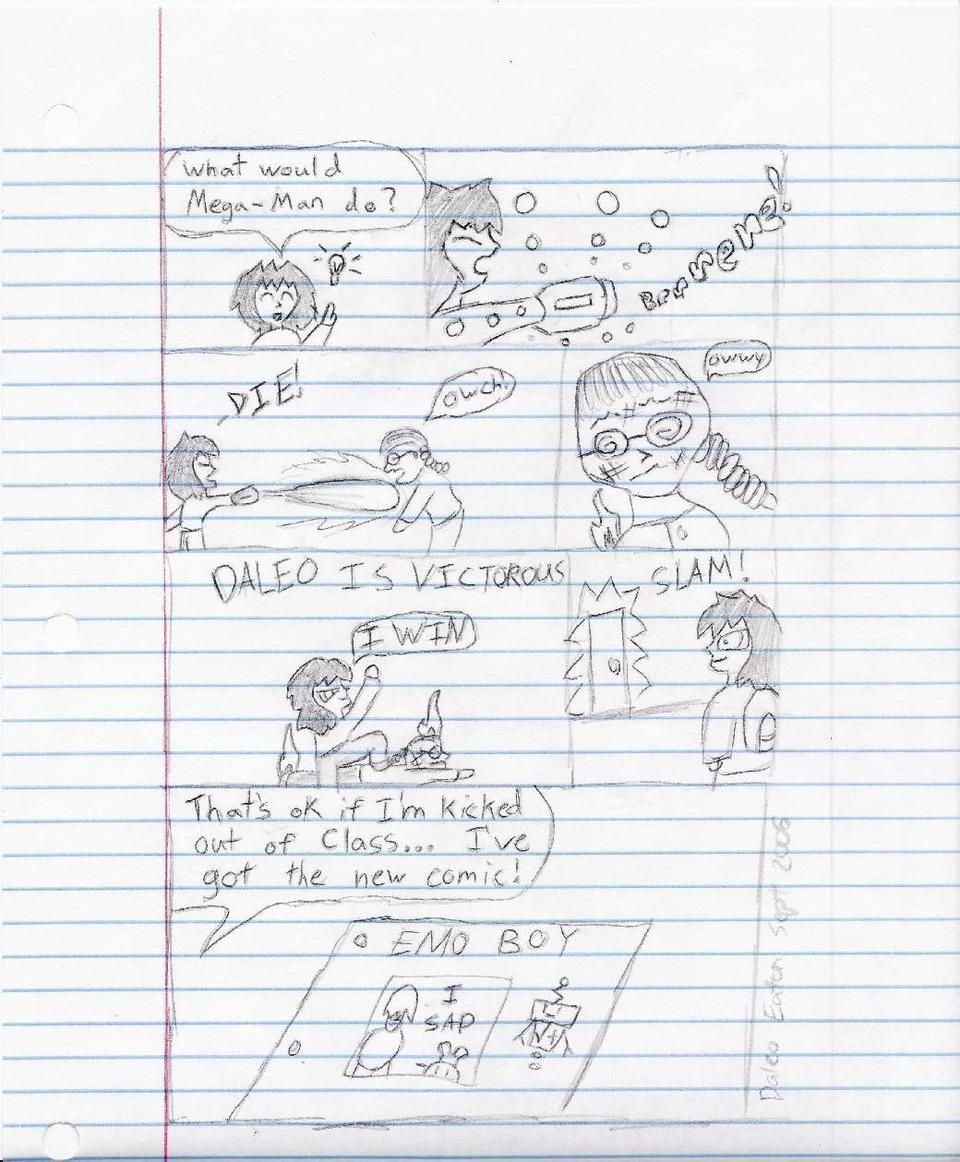 what would
Mega-Man do?
DIE!
owch!
owwy
DALEO IS VICTOROUS
I WIN
SLAM!
That's ok if I'm kicked
out of Class... I've
got the new comic!
EMO BOY
I
SAD
Daleo Eaton Sept 2006